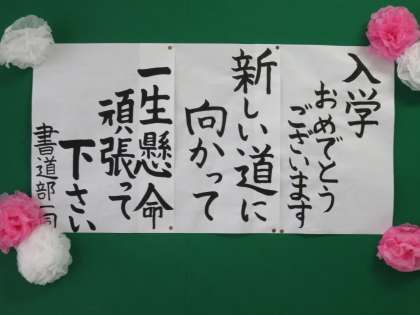 入学
おめでとう
ございます
新しい道に
向かって
一生懸命
頑張って
下さい
書道部一同